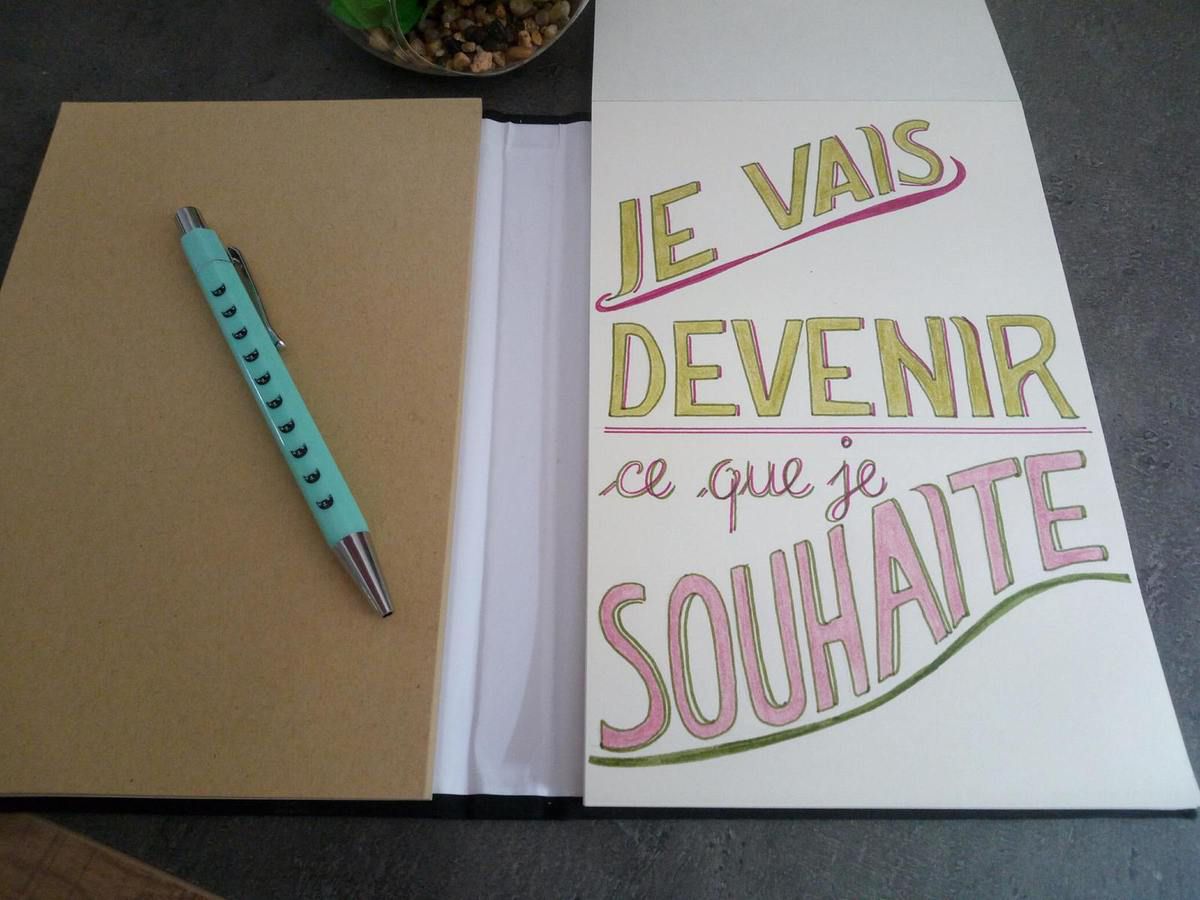 JE VAIS
DEVENIR
ce que je
SOUHAITE